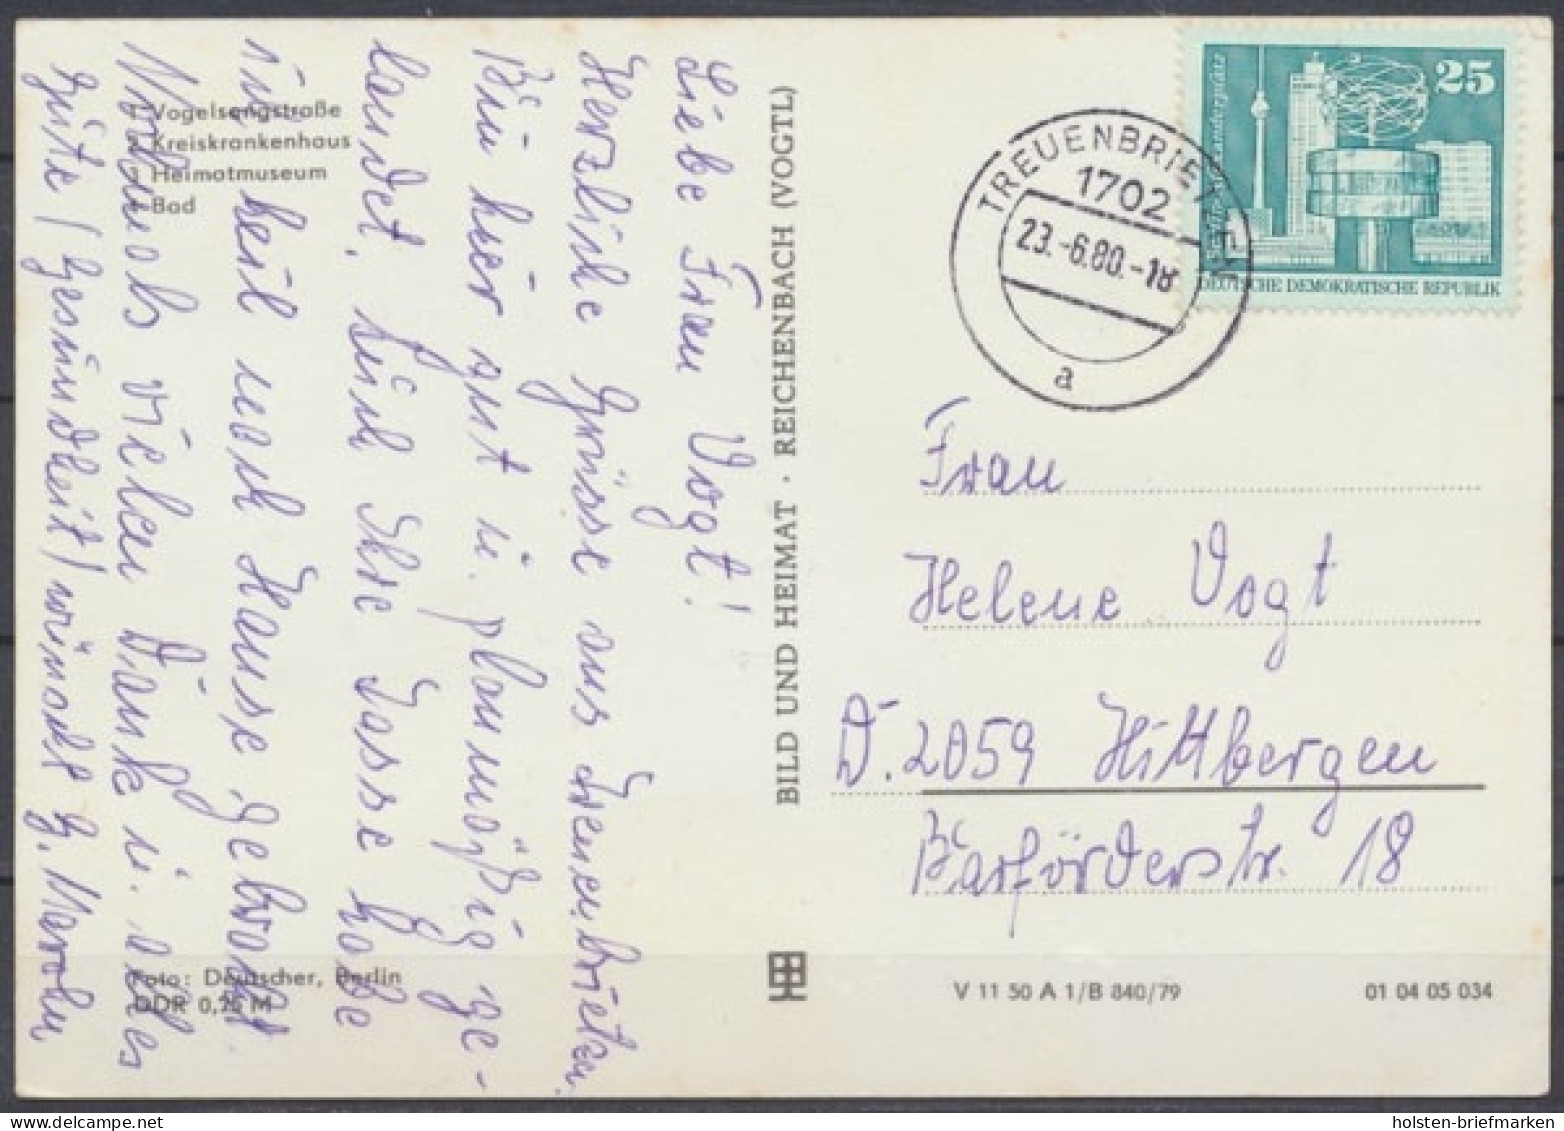 1 Vogelsangstraße
2 Kreiskrankenhaus
3 Heimatmuseum
4 Bad
Liebe Frau Vogt!
Herzliche Grüsse aus Treuenbrietzen.
Bin hier gut u. planmäßig ge-
landet. Auch Ihre Tasse habe
ich heil nach Hause gebracht.
Nochmals vielen Dank u. alles
Gute (Gesundheit) wünscht G.
Foto: Deutscher, Berlin
DDR 0,25 M
BILD UND HEIMAT · REICHENBACH (VOGTL)
TREUENBRIETZEN
1702
23.-6.80.-18
a
25
DEUTSCHE DEMOKRATISCHE REPUBLIK
Frau
Helene Vogt
D. 2059 Hittbergen
Barförderstr. 18
V 11 50 A 1/B 840/79
01 04 05 034
holsten-briefmarken